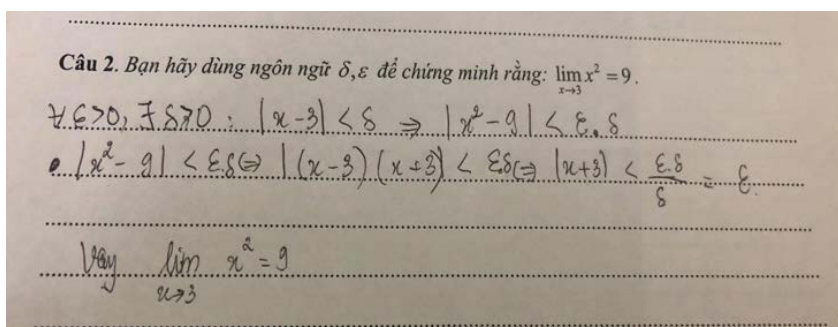 Câu 2. Bạn hãy dùng ngôn ngữ δ,ε để chứng minh rằng: lim x→3 x² = 9.
∀ε>0, ∃δ>0 : |x-3| < δ ⇒ |x²-9| < ε.δ
• |x²-9| < ε.δ ⇔ |(x-3)(x+3)| < εδ ⇔ |x+3| < ε.δ/δ = ε.
Vậy lim x→3 x² = 9